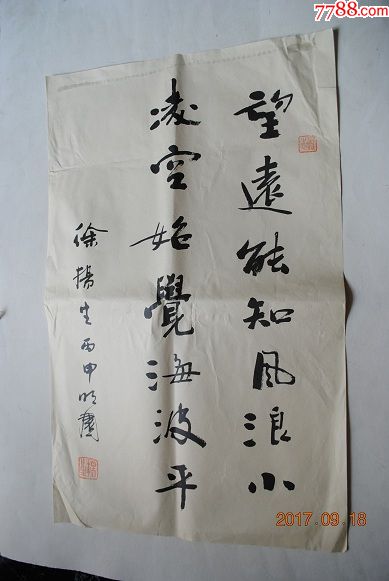 7788.com
望遠能知風浪小
凌空始覺海波平
徐揚生丙申
2017.09.18